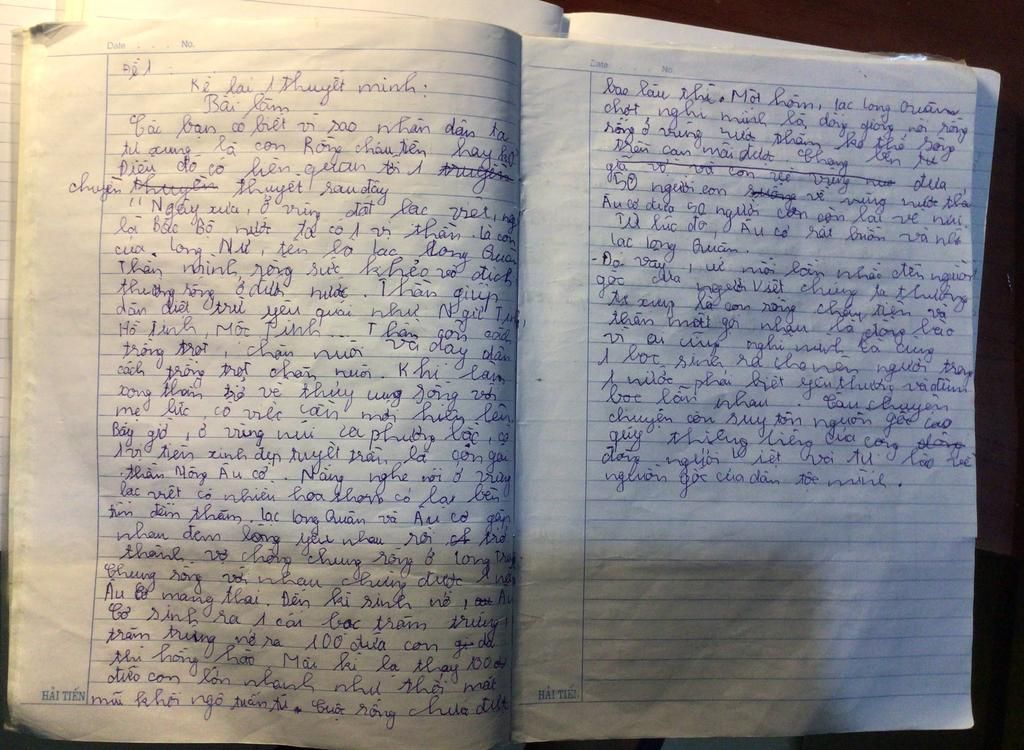 Date . . . . No.
Đề 1 :
Kể lại 1 thuyết minh :
Bài làm
Các bạn có biết vì sao nhân dân ta
tự xưng là con Rồng cháu tiên hay ko?
Điều đó có liên quan tới 1 truyện
chuyện truyền thuyết sau đây
"Ngày xưa, ở vùng đất lạc việt, ng
là Bắc Bộ nước ta có 1 vị thần là con
của Long Nữ, tên là lạc Long Quân
Thần mình rồng sức khỏe vô địch
thường sống ở dưới nước. Thần giúp
dân diệt trừ yêu quái như Ngư Tinh,
Hồ tinh, Mộc Tinh... Thần còn cách
trồng trọt, chăn nuôi và dạy dân
cách trồng trọt chăn nuôi. Khi làm
xong thần trở về thủy cung sống với
mẹ lúc có việc cần mới hiện lên.
Bấy giờ, ở vùng núi cao phương bắc, có
1 vị tiên xinh đẹp tuyệt trần là con gái
thần Nông Âu cơ. Nàng nghe nói ở vùng
lạc việt có nhiều hoa thơm cỏ lạ bèn
tìm đến thăm. lạc long Quân và Âu cơ gặp
nhau đem lòng yêu nhau rồi trở
thành vợ chồng chung sống ở Long Trang
Chung sống với nhau chừng được 1 năm
Âu Cơ mang thai. Đến kì sinh nở, Âu
Cơ sinh ra 1 cái bọc trăm trứng,
trăm trứng nở ra 100 đứa con da
thịt hồng hào Mới kì lạ thay 100
đứa con lớn nhanh như thổi mặt
mũi khôi ngô, tuấn tú. Cuộc sống chưa được
HẢI TIẾN
Date . . . . No.
bao lâu thì. Một hôm, lạc long Quân
chợt nghĩ mình là dòng giống nòi rồng
sống ở vùng nước thẳm ko thể sống
trên cạn mãi được Chàng bèn từ
giã vợ và con về vùng nước đưa
50 người con về vùng nước thẳm
Âu cơ đưa 50 người con còn lại về núi.
Từ lúc đó, Âu cơ rất buồn và nhớ
lạc long Quân.
- Do vậy, cứ mỗi lần nhắc đến nguồn
gốc của người Việt chúng ta thường
tự xưng là con rồng cháu tiên và
thân mật gọi nhau là đồng bào
vì ai cũng nghĩ mình là cùng
1 bọc sinh ra cho nên người trong
1 nước phải biết yêu thương và đùm
bọc lẫn nhau. Câu chuyện
chuyện còn suy tôn nguồn gốc cao
quý thiêng liêng của cộng đồng
đồng người việt với tự hào về
nguồn gốc của dân tộc mình.
HẢI TIẾN